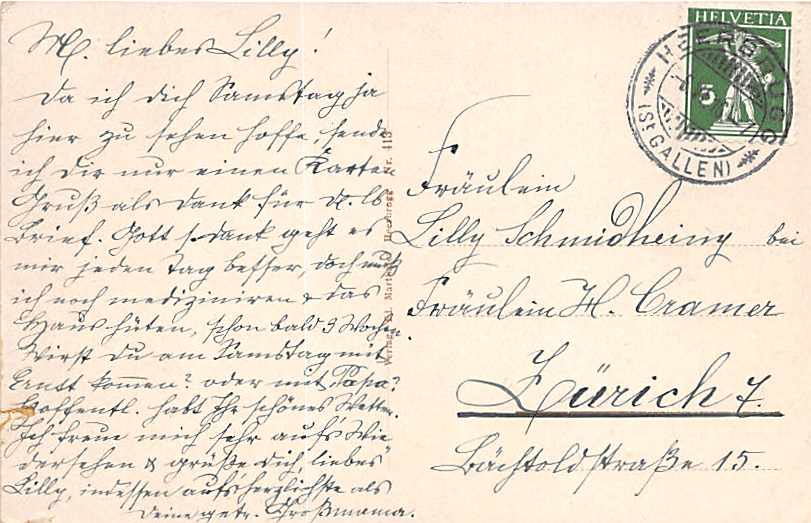 M. liebes Lilly!
Da ich dich Samstag ja
hier zu sehen hoffe, sende
ich dir nur einen Karten
Gruß als Dank für d. lb
Brief. Gott s. dank geht es
mir jeden Tag besser, doch muß
ich noch mediziniren & das
Haus hüten, schon bald 3 Wochen.
Wirst Du am Samstag mit
Ernst kommen? oder mit Papa?
Hoffentl. habt Ihr schönes Wetter.
Ich freue mich sehr aufs Wie
dersehen & grüße dich, liebes
Lilly, indessen aufs herzlichste als
Deine getr. Großmama.
Verlag Ed. Heerbrugg Nr. 113
HELVETIA
5
HEERBRUGG
(St. GALLEN)
Fräulein
Lilly Schmidheiny bei
Fräulein H. Cramer
Zürich 7.
Bächtoldstraße 15.